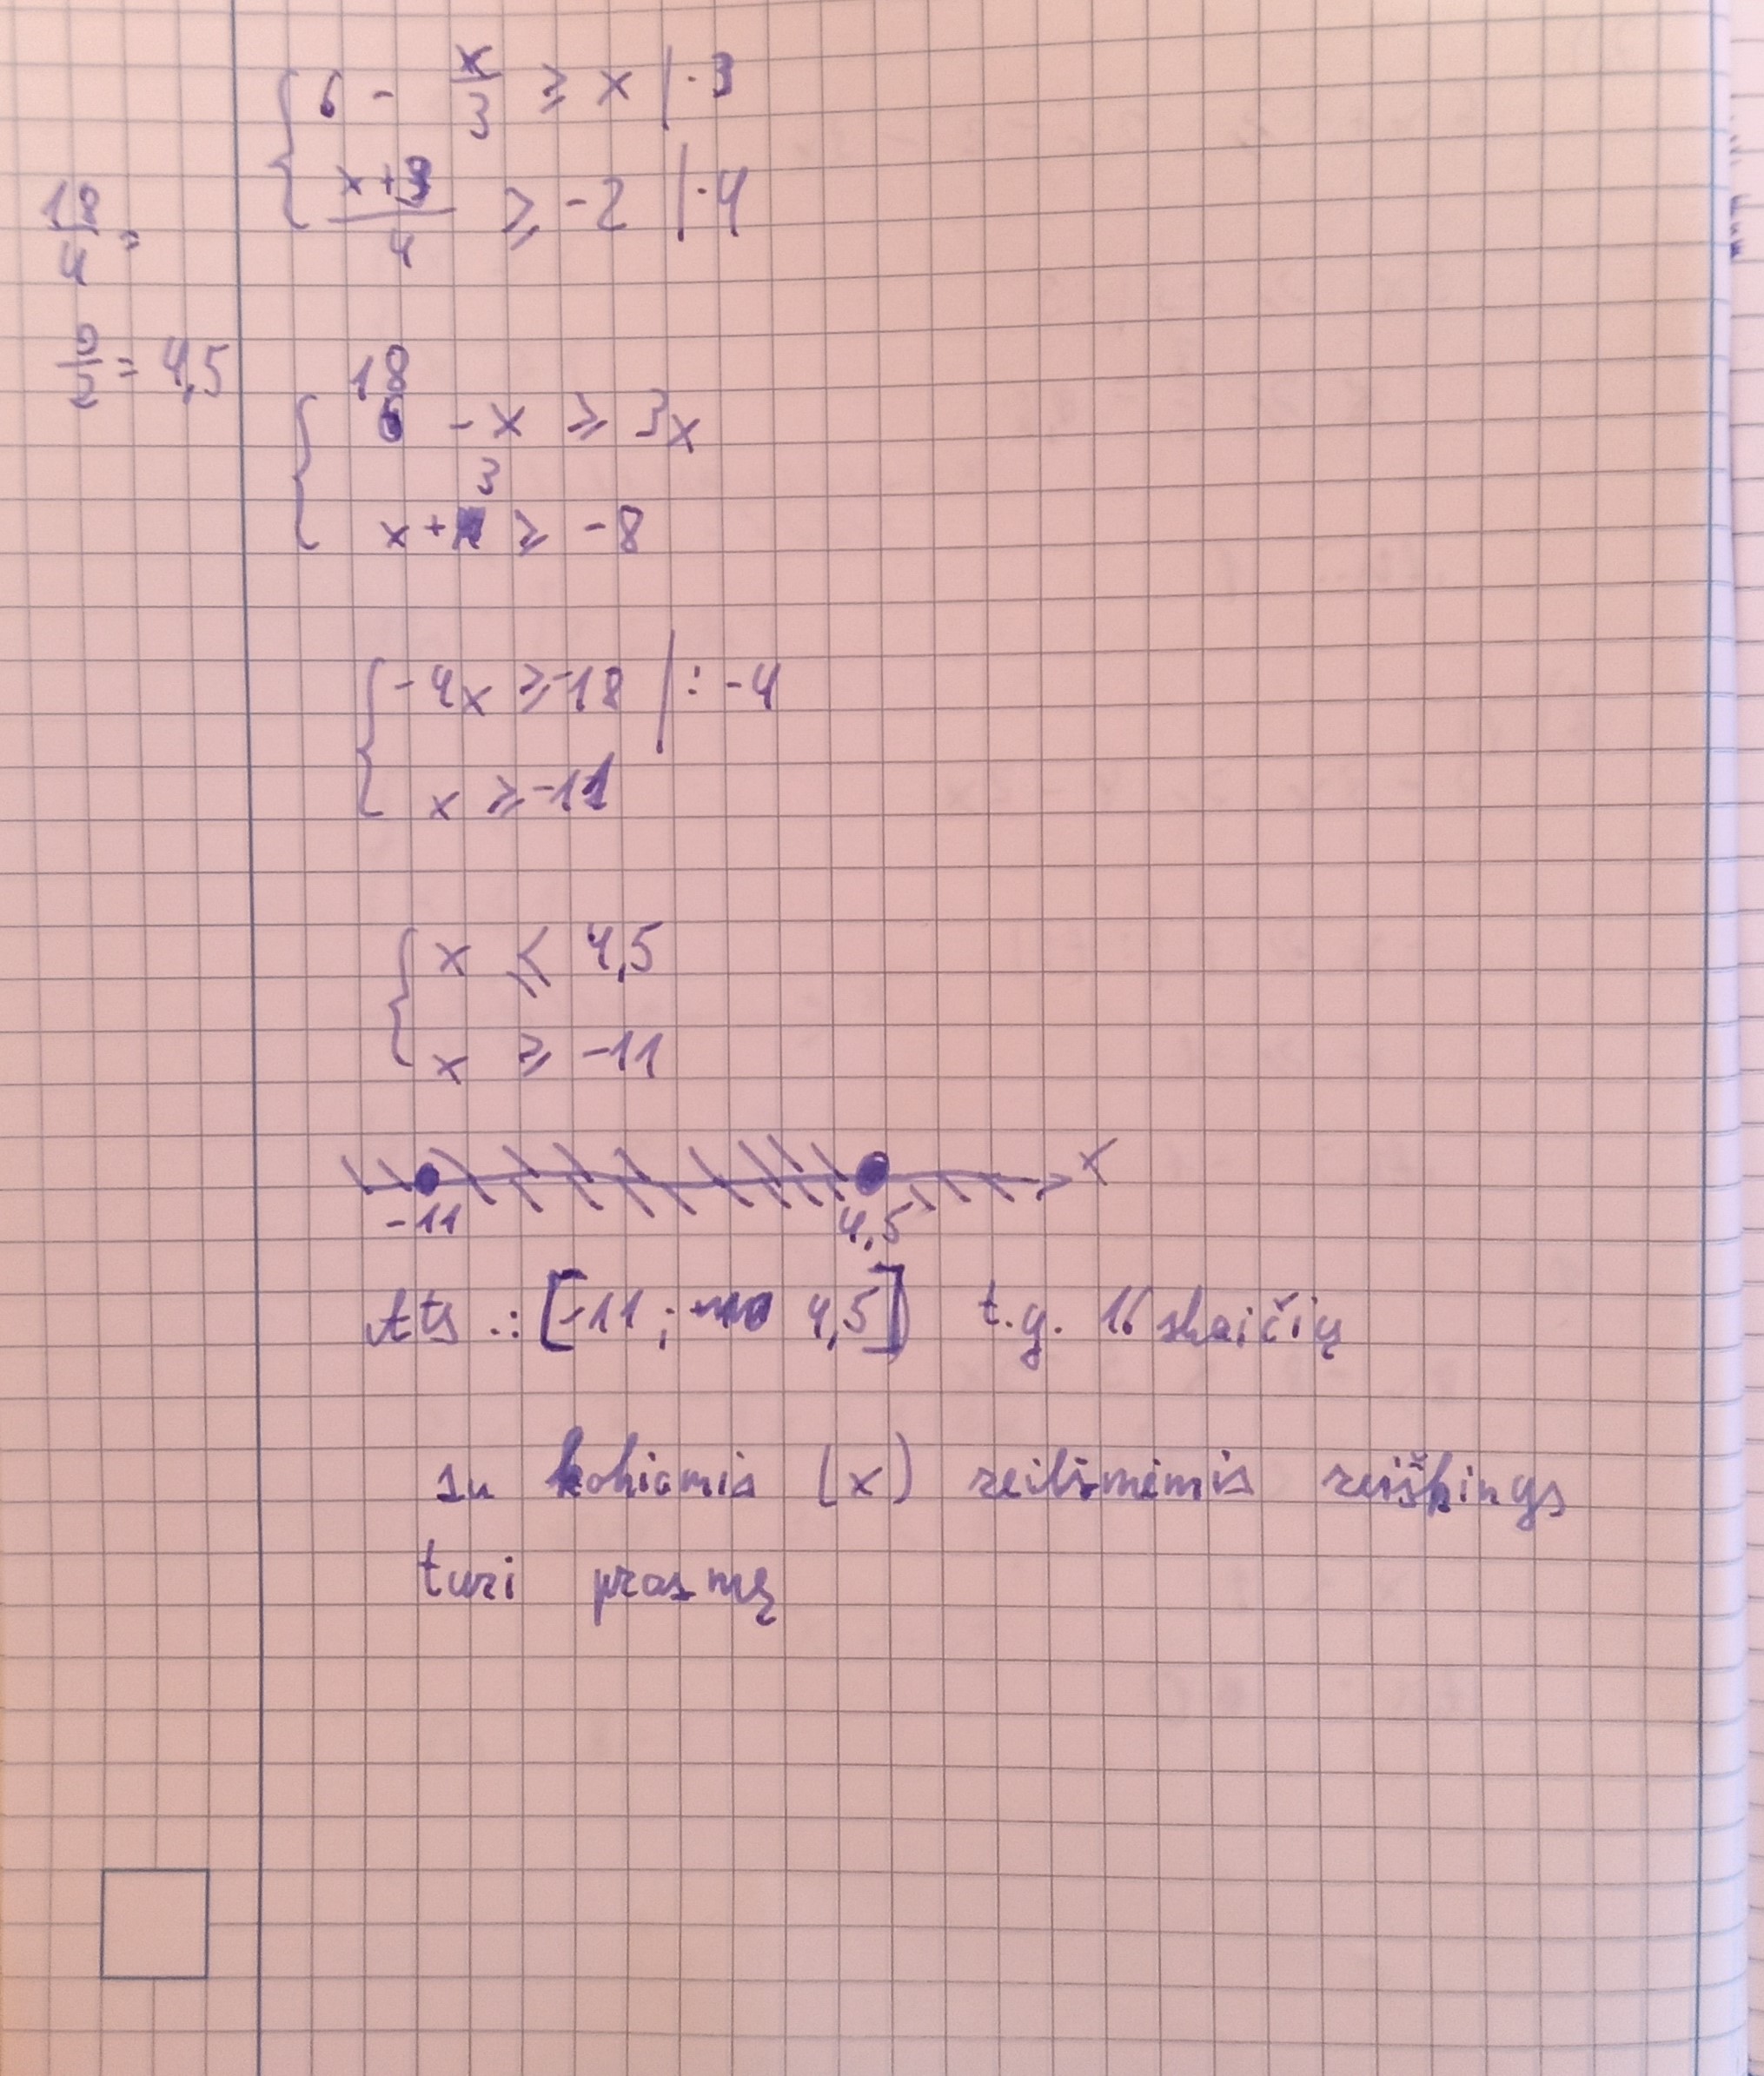 6 - x/3 ≥ x | ·3
(x+3)/4 ≥ -2 | ·4
18/4 =
9/2 = 4,5
18 - x ≥ 3x
x + 3 ≥ -8
-4x ≥ -18 | : -4
x ≥ -11
x ≤ 4,5
x ≥ -11
-11 4,5 x
Ats.: [-11; 4,5] t.y. 16 skaičių
su kokiamis (x) reikšmėmis reiškinys
turi prasmę